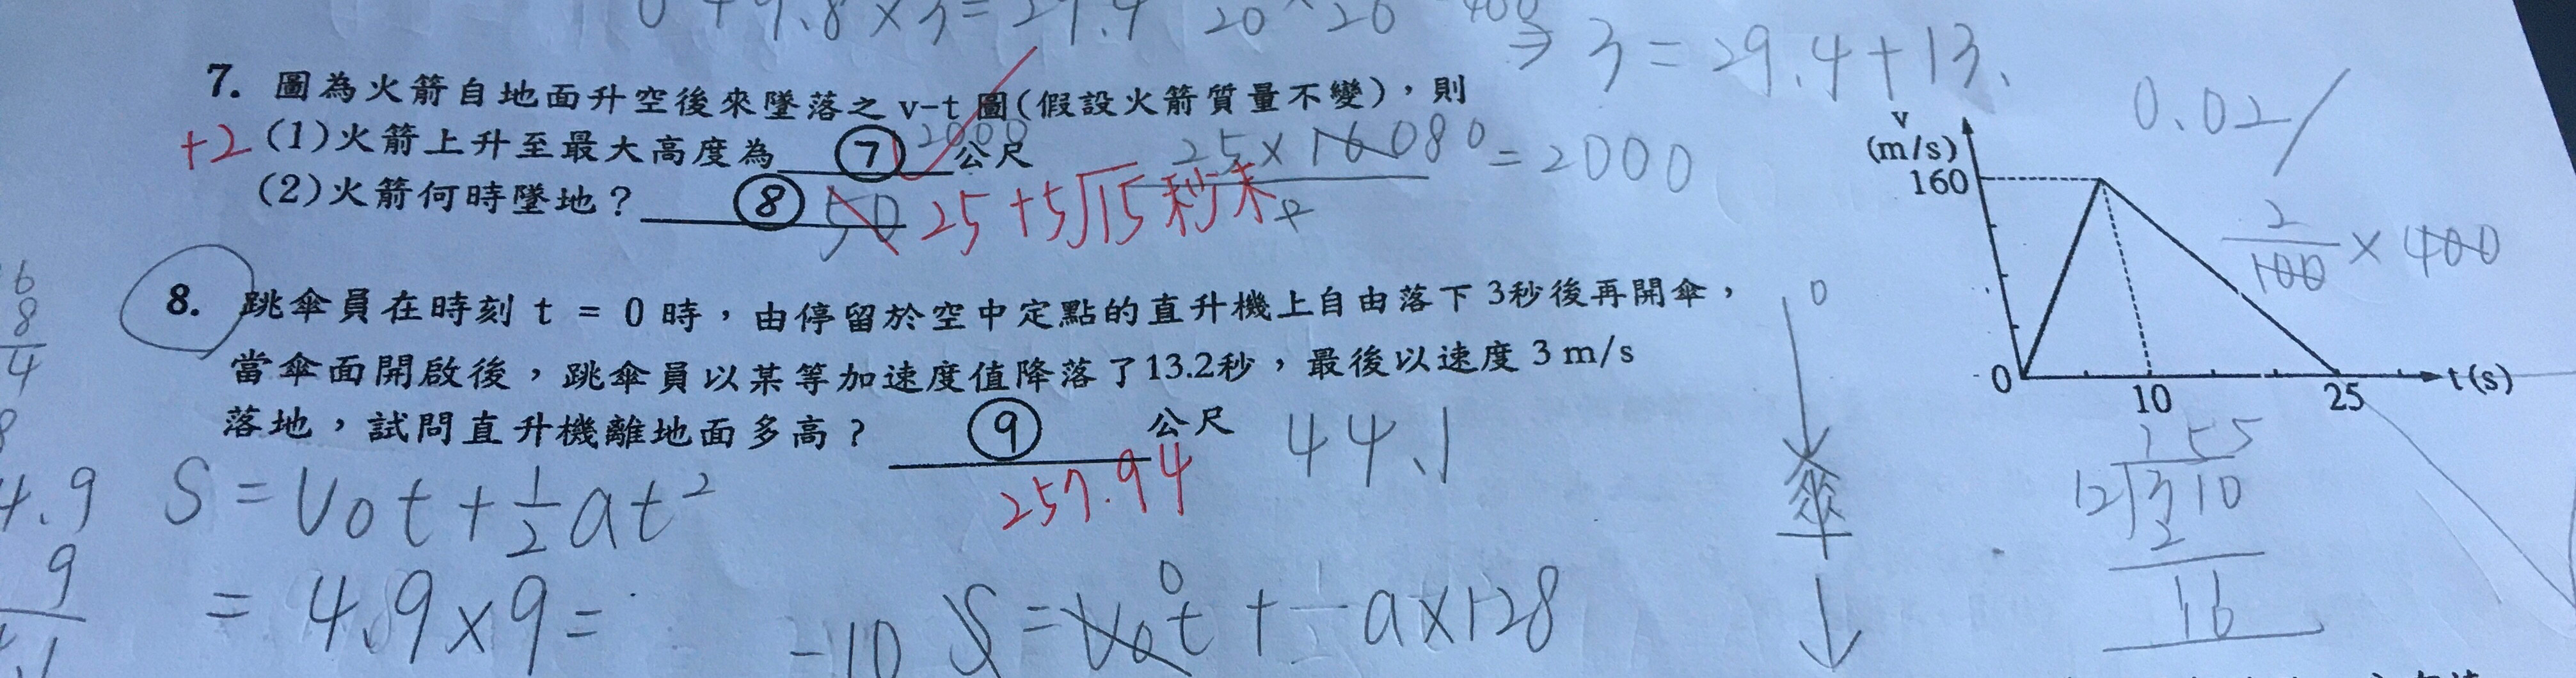 0+9.8×3=29.4 20×20 400
⇒ 3=29.4+13.
7. 圖為火箭自地面升空後來墜落之 v-t 圖(假設火箭質量不變)，則
+2 (1)火箭上升至最大高度為 ⑦ 2000 公尺
25×16080 = 2000
(2)火箭何時墜地？ ⑧ 50 25+5√15 秒末
v
(m/s)
160
0 10 25 t(s)
0.02
2/100 × 400
8. 跳傘員在時刻 t = 0 時，由停留於空中定點的直升機上自由落下 3秒後再開傘，
當傘面開啟後，跳傘員以某等加速度值降落了13.2秒，最後以速度 3 m/s
落地，試問直升機離地面多高？ ⑨ 公尺 44.1
257.94
6
8
4
4.9
9
S=V₀t+½at²
=4.9×9=
-10 S=V₀t+½a×128
0
0
傘
155
12 310
2
16